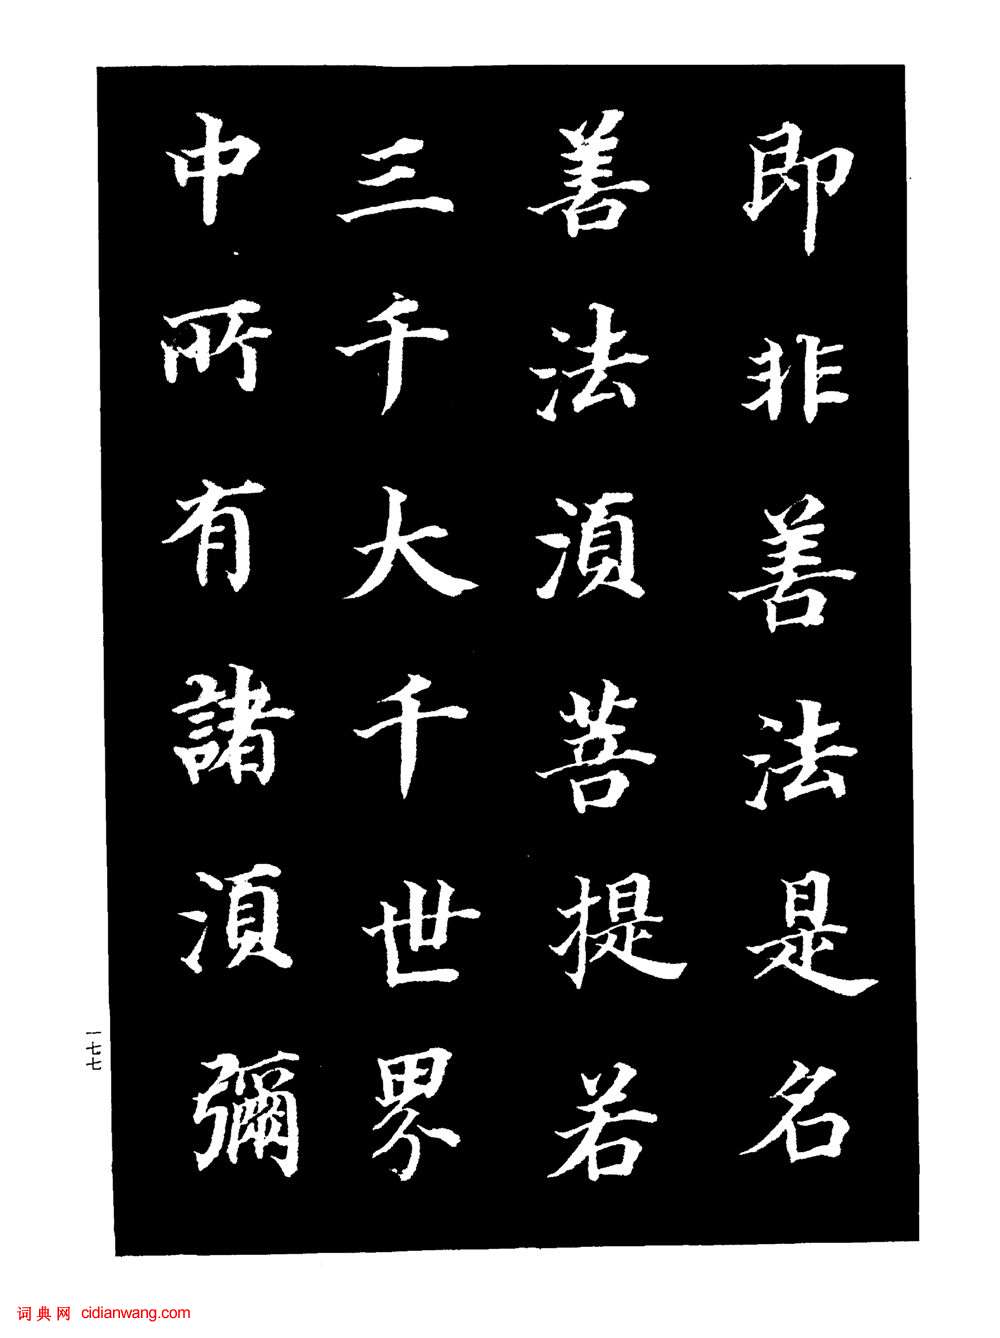 即非善法是名
善法須菩提若
三千大千世界
中所有諸須彌
一七七
词典网 cidianwang.com